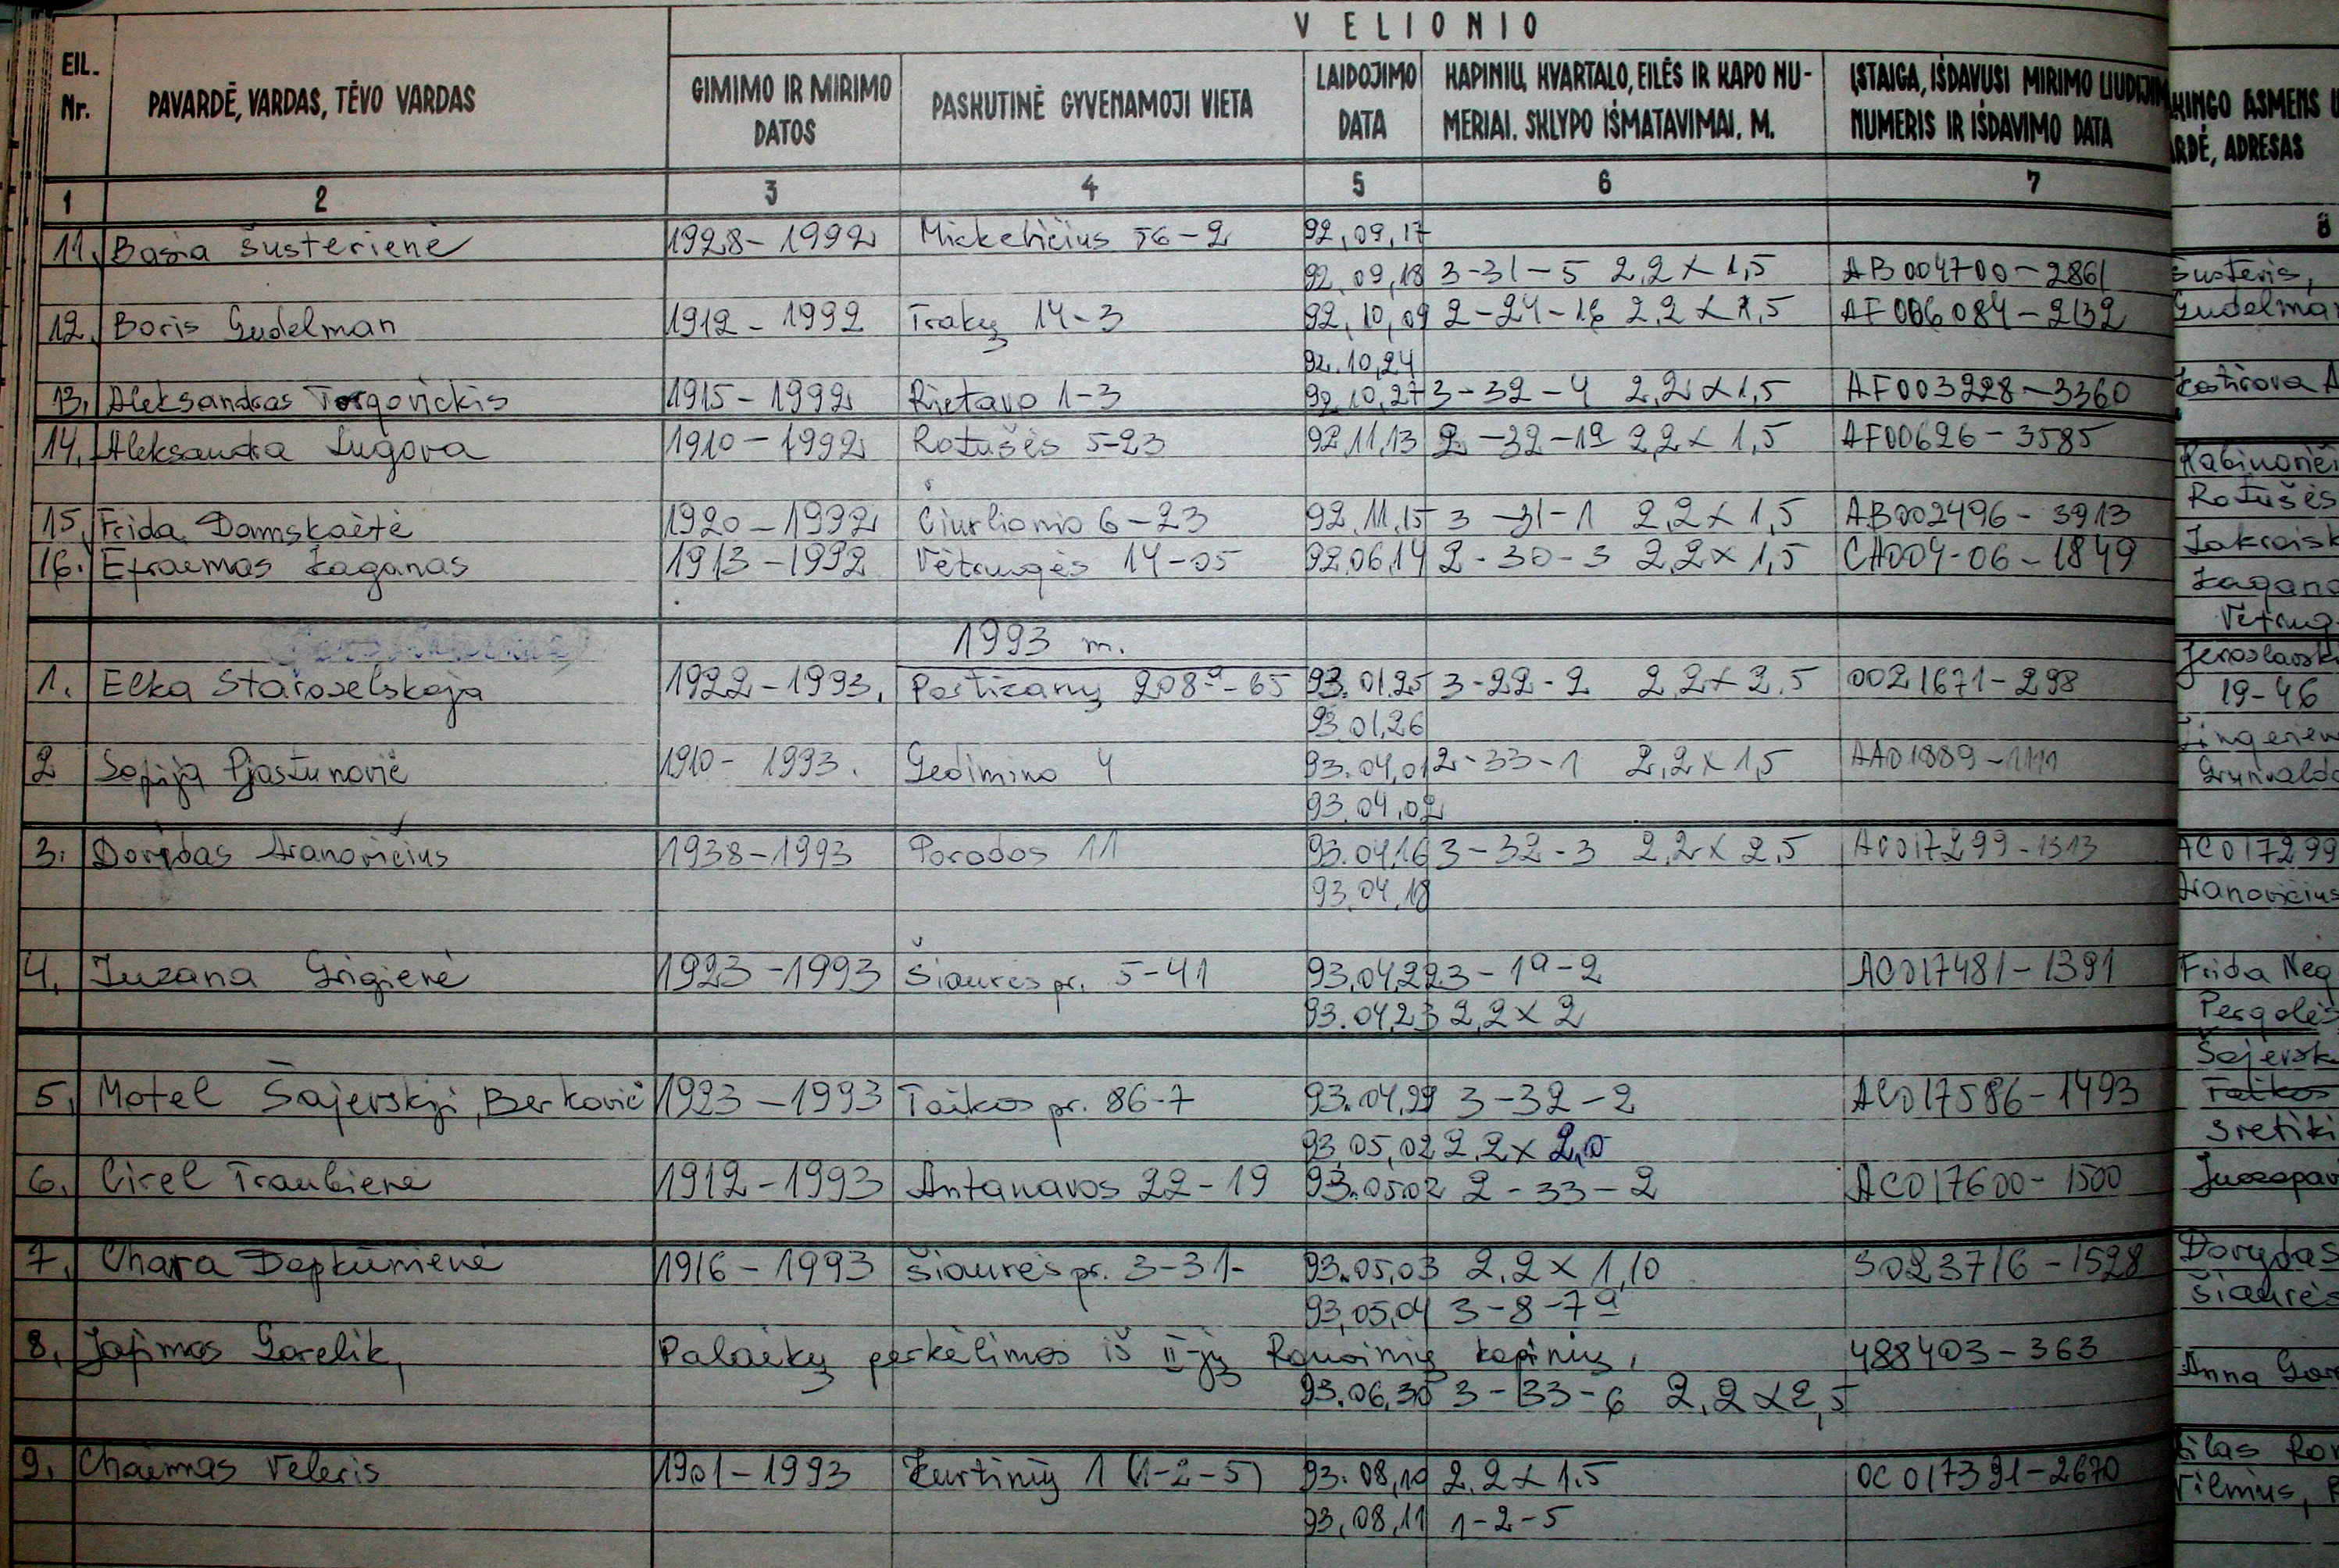 VELIONIO
EIL. Nr.
PAVARDĖ, VARDAS, TĖVO VARDAS
GIMIMO IR MIRIMO DATOS
PASKUTINĖ GYVENAMOJI VIETA
LAIDOJIMO DATA
KAPINIŲ, KVARTALO, EILĖS IR KAPO NU-
MERIAI. SKLYPO IŠMATAVIMAI, M.
ĮSTAIGA, IŠDAVUSI MIRIMO
NUMERIS IR IŠDAVIMO DATA
ASMENS
ADRESAS
1 2 3 4 5 6 7 8
11. Basia Šusterienė 1928-1992 Mickevičius 56-2 92,09,17
92,09,18 3-31-5 2,2 x 1,5 AB004700-2861 Šusteris,
12. Boris Gudelman 1912-1992 Trakų 14-3 92,10,09 2-24-16 2,2 x 1,5 AF006084-2132
92.10,24
13. Aleksandras Torgovickis 1915-1992 Rietavo 1-3 92,10,27 3-32-4 2,2 x 1,5 AF003228-3360
14. Aleksandra Lugova 1910-1992 Rotušės 5-23 92,11,13 2-32-19 2,2 x 1,5 AF00626-3585
Rotušės
15. Frida Damskaėtė 1920-1992 Čiurlionio 6-23 92.11.15 3-31-1 2,2 x 1,5 AB002496-3913
16. Efraemas Kaganas 1913-1992 Vėtrungės 14-05 92.06,14 2-30-3 2,2 x 1,5 CA004-06-1849
1993 m.
1. Elka Staroselskaja 1922-1993. Partizanų 208a-65 93.01.25 3-22-2 2,2 x 2,5 0021671-298 19-46
93.01,26
2 Sofija Pjastunovič 1910-1993. Gedimino 4 93.04,01 2-33-1 2,2 x 1,5 AA01889-1111
93.04,02
3. Dovydas Aranovičius 1938-1993 Parodos 11 93.04,16 3-32-3 2,2 x 2,5 AC017299-1313 AC017299
93.04,18 Aranovičius
4. Zuzana Grigienė 1923-1993 Šiaurės pr. 5-41 93.04,22 3-19-2 AC017481-1391 Frida
93.04,23 2,2 x 2
5. Motel Šajevskij, Berkovič 1923-1993 Taikos pr. 86-7 93.04,29 3-32-2 AC017586-1493 Taikos
93,05,02 2,2 x 2,0
6. Cirel Traubienė 1912-1993 Antanavos 22-19 93.05.02 2-33-2 AC017600-1500
7. Chara Dapkūnienė 1916-1993 Šiaurės pr. 3-31- 93.05,03 2,2 x 1,10 3023716-1528 Dovydas
93,05,04 3-8-7a Šiaurės
8. Jafimas Gorelik, Palaikų perkėlimas iš II-jų Kapinių, 488403-363 Anna
93.06,30 3-33-6 2,2 x 2,5
9. Chaimas Veleris 1901-1993 Kurtinių 1 (1-2-5) 93.08,10 2,2 x 1.5 0C017391-2670
93,08,11 1-2-5 Vilnius,